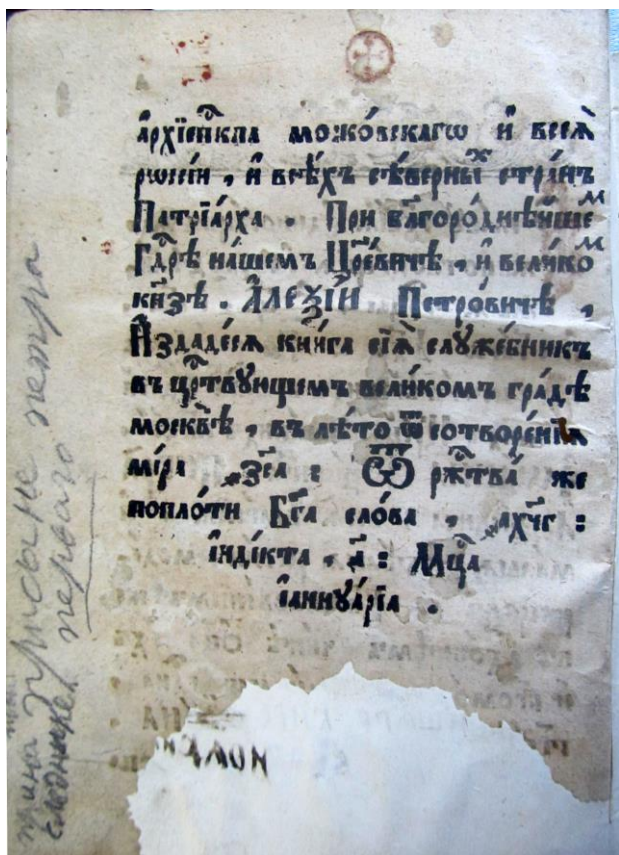 а҆рхїепⷭ҇кпа можко́вскагѡ и҆ всеѧ̀
рѡссі́и , и҆ всѣ́хъ сѣ́верныⷯ стра́нъ
Патрїа́рха . При бл҃горо́днѣ́йшеⷨ
Гдⷭ҇рѣ на́шемъ Цр҃е́вичѣ , и҆ вели́коⷨ
кн҃зѣ . А҆ЛЕѮІ́И Петро́вичѣ ,
И҆здаде́сѧ кни́га сїѧ̀ слꙋже́бникъ
въ црⷭ҇твꙋющемъ вели́комъ гра́дѣ
москвѣ̀ , въ лѣ́то ѿ сотворе́нїѧ
мі́ра ҂зс҃а : Ѿ ржⷭ҇тва́ же
поплѡ́ти Бг҃а сло́ва , ҂ахч҃г :
і҆нді́кта , а҃ : Мцⷭ҇а
і҆аннꙋа́рїа .
перваго петра